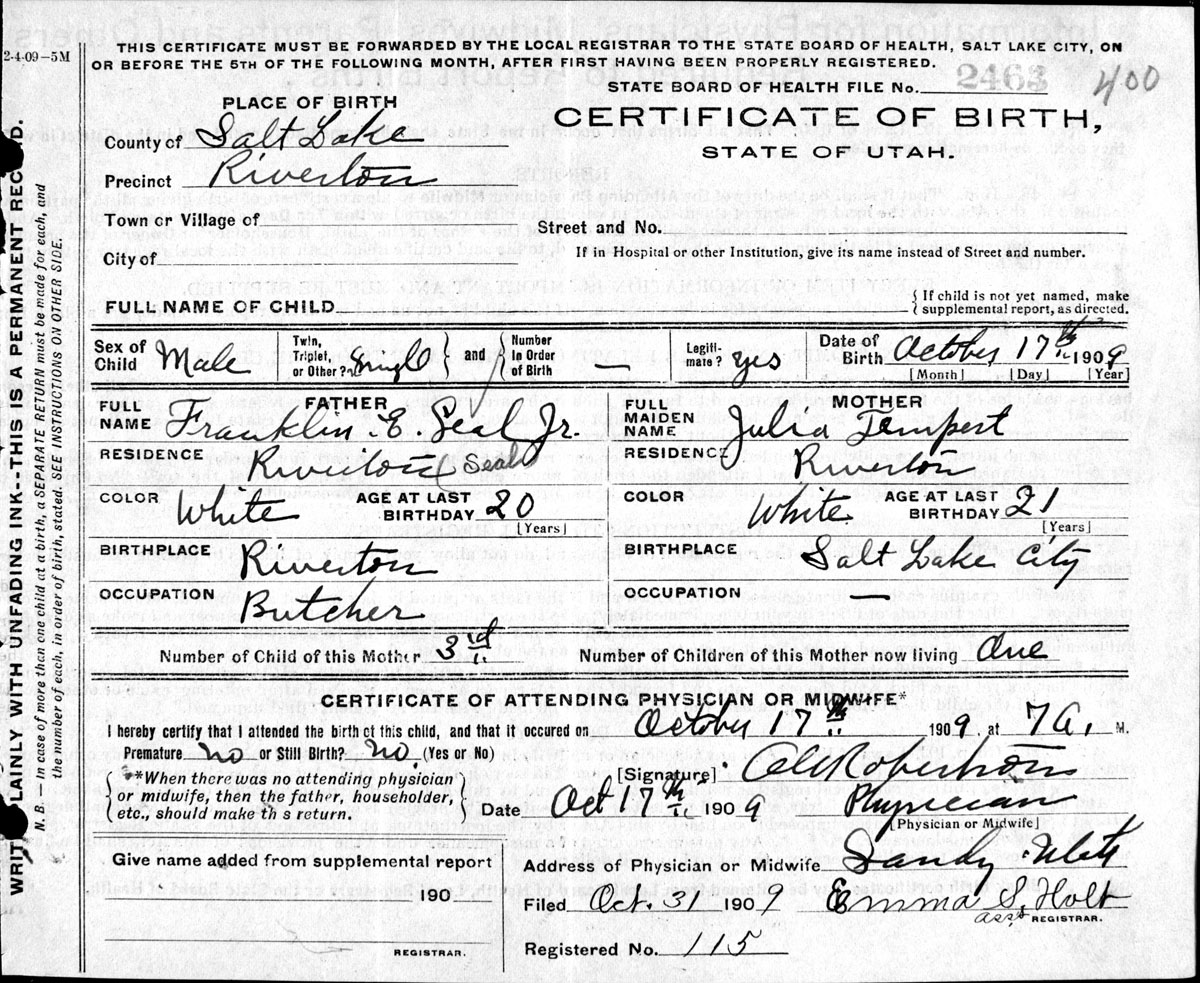 2-4-09-5M
THIS CERTIFICATE MUST BE FORWARDED BY THE LOCAL REGISTRAR TO THE STATE BOARD OF HEALTH, SALT LAKE CITY, ON
OR BEFORE THE 5TH OF THE FOLLOWING MONTH, AFTER FIRST HAVING BEEN PROPERLY REGISTERED.
STATE BOARD OF HEALTH FILE No. 2463 400
PLACE OF BIRTH
CERTIFICATE OF BIRTH,
STATE OF UTAH.
County of Salt Lake
Precinct Riverton
Town or Village of
Street and No.
City of
If in Hospital or other Institution, give its name instead of Street and number.
FULL NAME OF CHILD
{ If child is not yet named, make
supplemental report, as directed.
Sex of Child Male
Twin, Triplet, or Other? Single
and
Number in Order of Birth —
Legiti-mate? yes
Date of Birth October 17th 1909
[Month] [Day] [Year]
FATHER
FULL NAME Franklin. E. Seal Jr.
RESIDENCE Riverton (Seal)
COLOR White AGE AT LAST BIRTHDAY 20
[Years]
BIRTHPLACE Riverton
OCCUPATION Butcher
MOTHER
FULL MAIDEN NAME Julia Tempest
RESIDENCE Riverton
COLOR White AGE AT LAST BIRTHDAY 21
[Years]
BIRTHPLACE Salt Lake City
OCCUPATION —
Number of Child of this Mother 3rd
Number of Children of this Mother now living One
CERTIFICATE OF ATTENDING PHYSICIAN OR MIDWIFE*
I hereby certify that I attended the birth of this child, and that it occured on October 17th 1909, at 7 a. M.
Premature no or Still Birth? no. (Yes or No)
*When there was no attending physician
or midwife, then the father, householder,
etc., should make th s return.
[Signature] Robertson
Date Oct 17th 1909 Physician
[Physician or Midwife]
Give name added from supplemental report
190
REGISTRAR.
Address of Physician or Midwife Sandy Utah
Filed Oct. 31 1909 Emma S. Holt
asst REGISTRAR.
Registered No. 115
WRITE PLAINLY WITH UNFADING INK--THIS IS A PERMANENT RECORD.
N. B.—In case of more than one child at birth, a SEPARATE RETURN must be made for each, and
the number of each, in order of birth, stated. SEE INSTRUCTIONS ON OTHER SIDE.